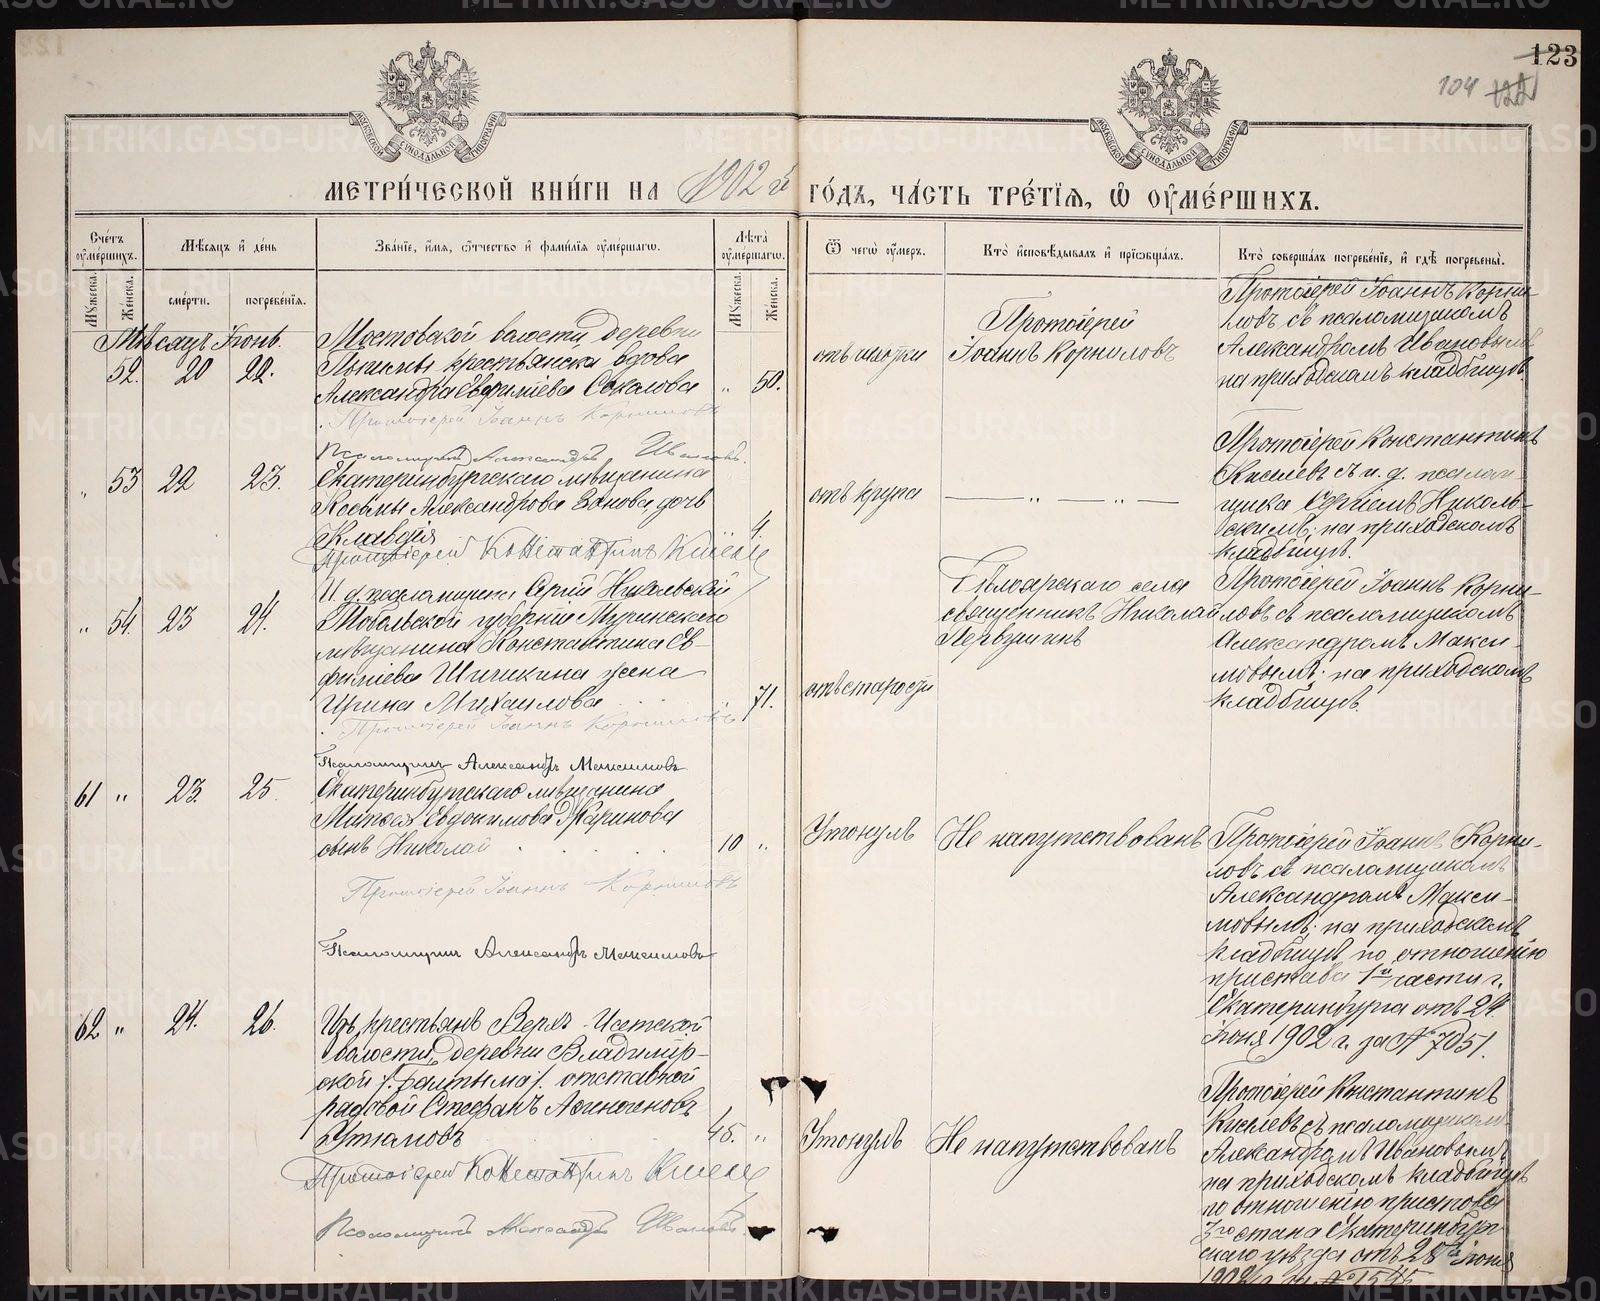 123
104
МЕТРИЧЕСКОЙ КНИГИ НА 1902 й ГОДЪ, ЧАСТЬ ТРЕТІЯ, Ѿ ОУМЕРШИХЪ.
Счетъ оумершихъ.
Мужеска.
Женска.
Мѣсяцъ и день
смерти.
погребенія.
Званіе, имя, отчество и фамилія оумершагѡ.
Лѣта оумершагѡ.
Мужеска.
Женска.
Ѿ чегѡ оумеръ.
Кто исповѣдывалъ и пріѡбщалъ.
Кто совершалъ погребеніе, и гдѣ погребены.
Мѣсяцъ Іюнь.
52. 20 22.
Мостовской волости, деревни
крестьянская вдова
Александра Евфиміева Соколова
" 50.
Протоіерей Іоаннъ Корниловъ
Псаломщикъ Александръ Ивановъ.
отъ
Протоіерей
Іоаннъ Корниловъ
Протоіерей Іоаннъ Корни-
ловъ съ псаломщикомъ
Александромъ Ивановымъ
на приходскомъ кладбищѣ.
" 53 22 23.
Екатеринбургскаго мѣщанина
Косьмы Александрова дочь
Клавдія
" 4.
Протоіерей Константинъ Киселевъ
И. д. псаломщика Сергій Никольскій
отъ крупа
— " — " —
Протоіерей Константинъ
Киселевъ съ и. д. псалом-
щика Сергіемъ Николь-
скимъ; на приходскомъ
кладбищѣ.
" 54. 23 24.
Тобольской губерніи Туринскаго
мѣщанина Константина Ев-
фиміева Шишкина жена
Ирина Михаилова
" 71.
Протоіерей Іоаннъ Корниловъ
Псаломщикъ Александръ Максимовъ
отъ старости
села
священникъ Николай
Первушинъ
Протоіерей Іоаннъ Корни-
ловъ съ псаломщикомъ
Александромъ Макси-
мовымъ; на приходскомъ
кладбищѣ.
61 " 23. 25.
Екатеринбургскаго мѣщанина
Евдокимова
сынъ Николай
10 "
Протоіерей Іоаннъ Корниловъ
Псаломщикъ Александръ Максимовъ
Утонулъ
Не напутствованъ
Протоіерей Іоаннъ Корни-
ловъ съ псаломщикомъ
Александромъ Макси-
мовымъ; на приходскомъ
кладбищѣ, по отношенію
пристава 1й части г.
Екатеринбурга отъ 24
Іюня 1902 г. за № 7051.
62. " 24. 26.
Изъ крестьянъ Верхъ-Исетской
волости, деревни Владимір-
ской /:Балтыма/: отставной
рядовой Стефанъ Аѳиногеновъ
Утюмовъ
45. "
Протоіерей Константинъ Киселевъ
Псаломщикъ Александръ Ивановъ
Утонулъ
Не напутствованъ
Протоіерей Константинъ
Киселевъ съ псаломщикомъ
Александромъ Ивановымъ
на приходскомъ кладбищѣ
по отношенію пристава
3го стана Екатеринбург-
скаго уѣзда отъ 25го Іюня
1902 г. за № 1545
METRIKI.GASO-URAL.RU